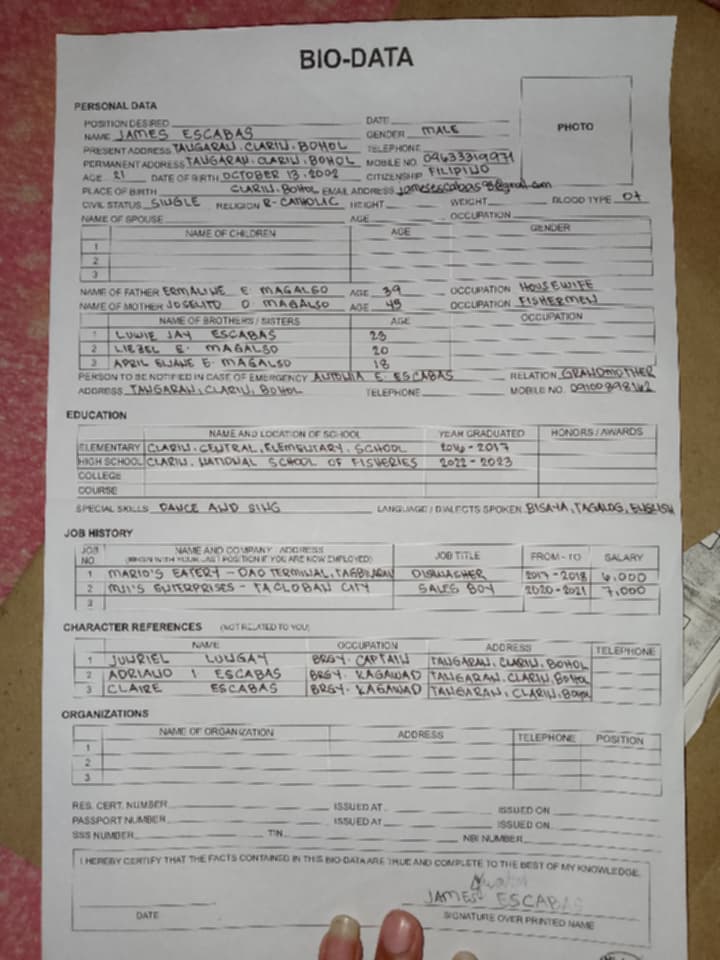 BIO-DATA
PERSONAL DATA
PHOTO
POSITION DESIRED DATE
NAME JAMES ESCABAS GENDER MALE
PRESENT ADDRESS TANGARAN, CLARIN, BOHOL TELEPHONE
PERMANENT ADDRESS TANGARAN, CLARIN, BOHOL MOBILE NO. 09633319971
AGE 21 DATE OF BIRTH OCTOBER 13, 2002 CITIZENSHIP FILIPINO
PLACE OF BIRTH CLARIN, BOHOL EMAIL ADDRESS
CIVIL STATUS SINGLE RELIGION R-CATHOLIC HEIGHT WEIGHT BLOOD TYPE O+
NAME OF SPOUSE AGE OCCUPATION
NAME OF CHILDREN AGE GENDER
1
2
3
NAME OF FATHER ERMALINE E. MAGALSO AGE 39 OCCUPATION HOUSEWIFE
NAME OF MOTHER JOSELITO O. MAGALSO AGE 45 OCCUPATION FISHERMEN
NAME OF BROTHERS / SISTERS AGE OCCUPATION
1 LUWIE JAY ESCABAS 23
2 LIEZEL E. MAGALSO 20
3 APRIL E. MAGALSO 18
PERSON TO BE NOTIFIED IN CASE OF EMERGENCY ANTONIA E. ESCABAS RELATION GRANDMOTHER
ADDRESS TANGARAN, CLARIN, BOHOL TELEPHONE MOBILE NO.
EDUCATION
NAME AND LOCATION OF SCHOOL YEAR GRADUATED HONORS / AWARDS
ELEMENTARY CLARIN, CENTRAL, ELEMENTARY, SCHOOL 2016-2017
HIGH SCHOOL CLARIN, NATIONAL SCHOOL OF FISHERIES 2022-2023
COLLEGE
COURSE
SPECIAL SKILLS DANCE AND SING LANGUAGE / DIALECTS SPOKEN BISAYA, TAGALOG, ENGLISH
JOB HISTORY
JOB NO. NAME AND COMPANY ADDRESS JOB TITLE FROM - TO SALARY
(BEGIN WITH YOUR LAST POSITION IF YOU ARE NOW EMPLOYED)
1 MARIO'S EATERY - DAO TERMINAL, TAGBILARAN DISHWASHER 2017-2018 6,000
2 ENTERPRISES - TACLOBAN CITY SALES BOY 2020-2021 7,000
3
CHARACTER REFERENCES (NOT RELATED TO YOU)
NAME OCCUPATION ADDRESS TELEPHONE
1 JUNRIEL LUNGAY BRGY. CAPTAIN TANGARAN, CLARIN, BOHOL
2 ADRIANO I ESCABAS BRGY. KAGAWAD TANGARAN, CLARIN, BOHOL
3 CLAIRE ESCABAS BRGY. KAGAWAD TANGARAN, CLARIN, BOHOL
ORGANIZATIONS
NAME OF ORGANIZATION ADDRESS TELEPHONE POSITION
1
2
3
RES. CERT. NUMBER ISSUED AT ISSUED ON
PASSPORT NUMBER ISSUED AT ISSUED ON
SSS NUMBER TIN NBI NUMBER
I HEREBY CERTIFY THAT THE FACTS CONTAINED IN THIS BIO-DATA ARE TRUE AND COMPLETE TO THE BEST OF MY KNOWLEDGE.
JAMES ESCABAS
DATE SIGNATURE OVER PRINTED NAME